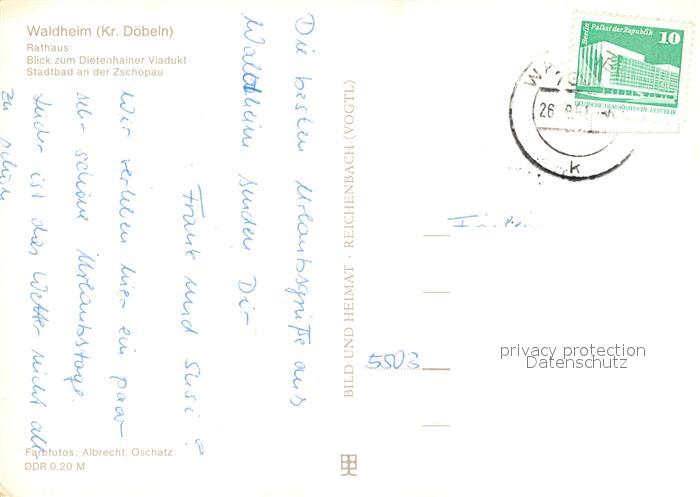 Waldheim (Kr. Döbeln)
Rathaus
Blick zum Dietenhainer Viadukt
Stadtbad an der Zschopau
Die besten Urlaubsgrüße aus
Waldheim senden Dir
Frank und Susi
Wir verleben hier ein paar
sehr schöne Urlaubstage.
Leider ist das Wetter nicht all-
zu schön
Farbfotos: Albrecht, Oschatz
DDR 0,20 M
BILD UND HEIMAT · REICHENBACH (VOGTL)
Berlin, Palast der Republik
10
DEUTSCHE DEMOKRATISCHE REPUBLIK
26
k
5503
privacy protection
Datenschutz